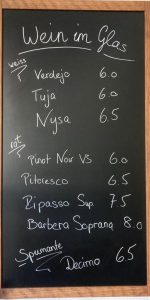 Wein im Glas
weiss
Verdejo 6.0
Tuja 6.0
Nysa 6.5
rot
Pinot Noir VS 6.0
Pitoresco 6.5
Ripasso Sup. 7.5
Barbera Soprana 8.0
Spumante
Decimo 6.5